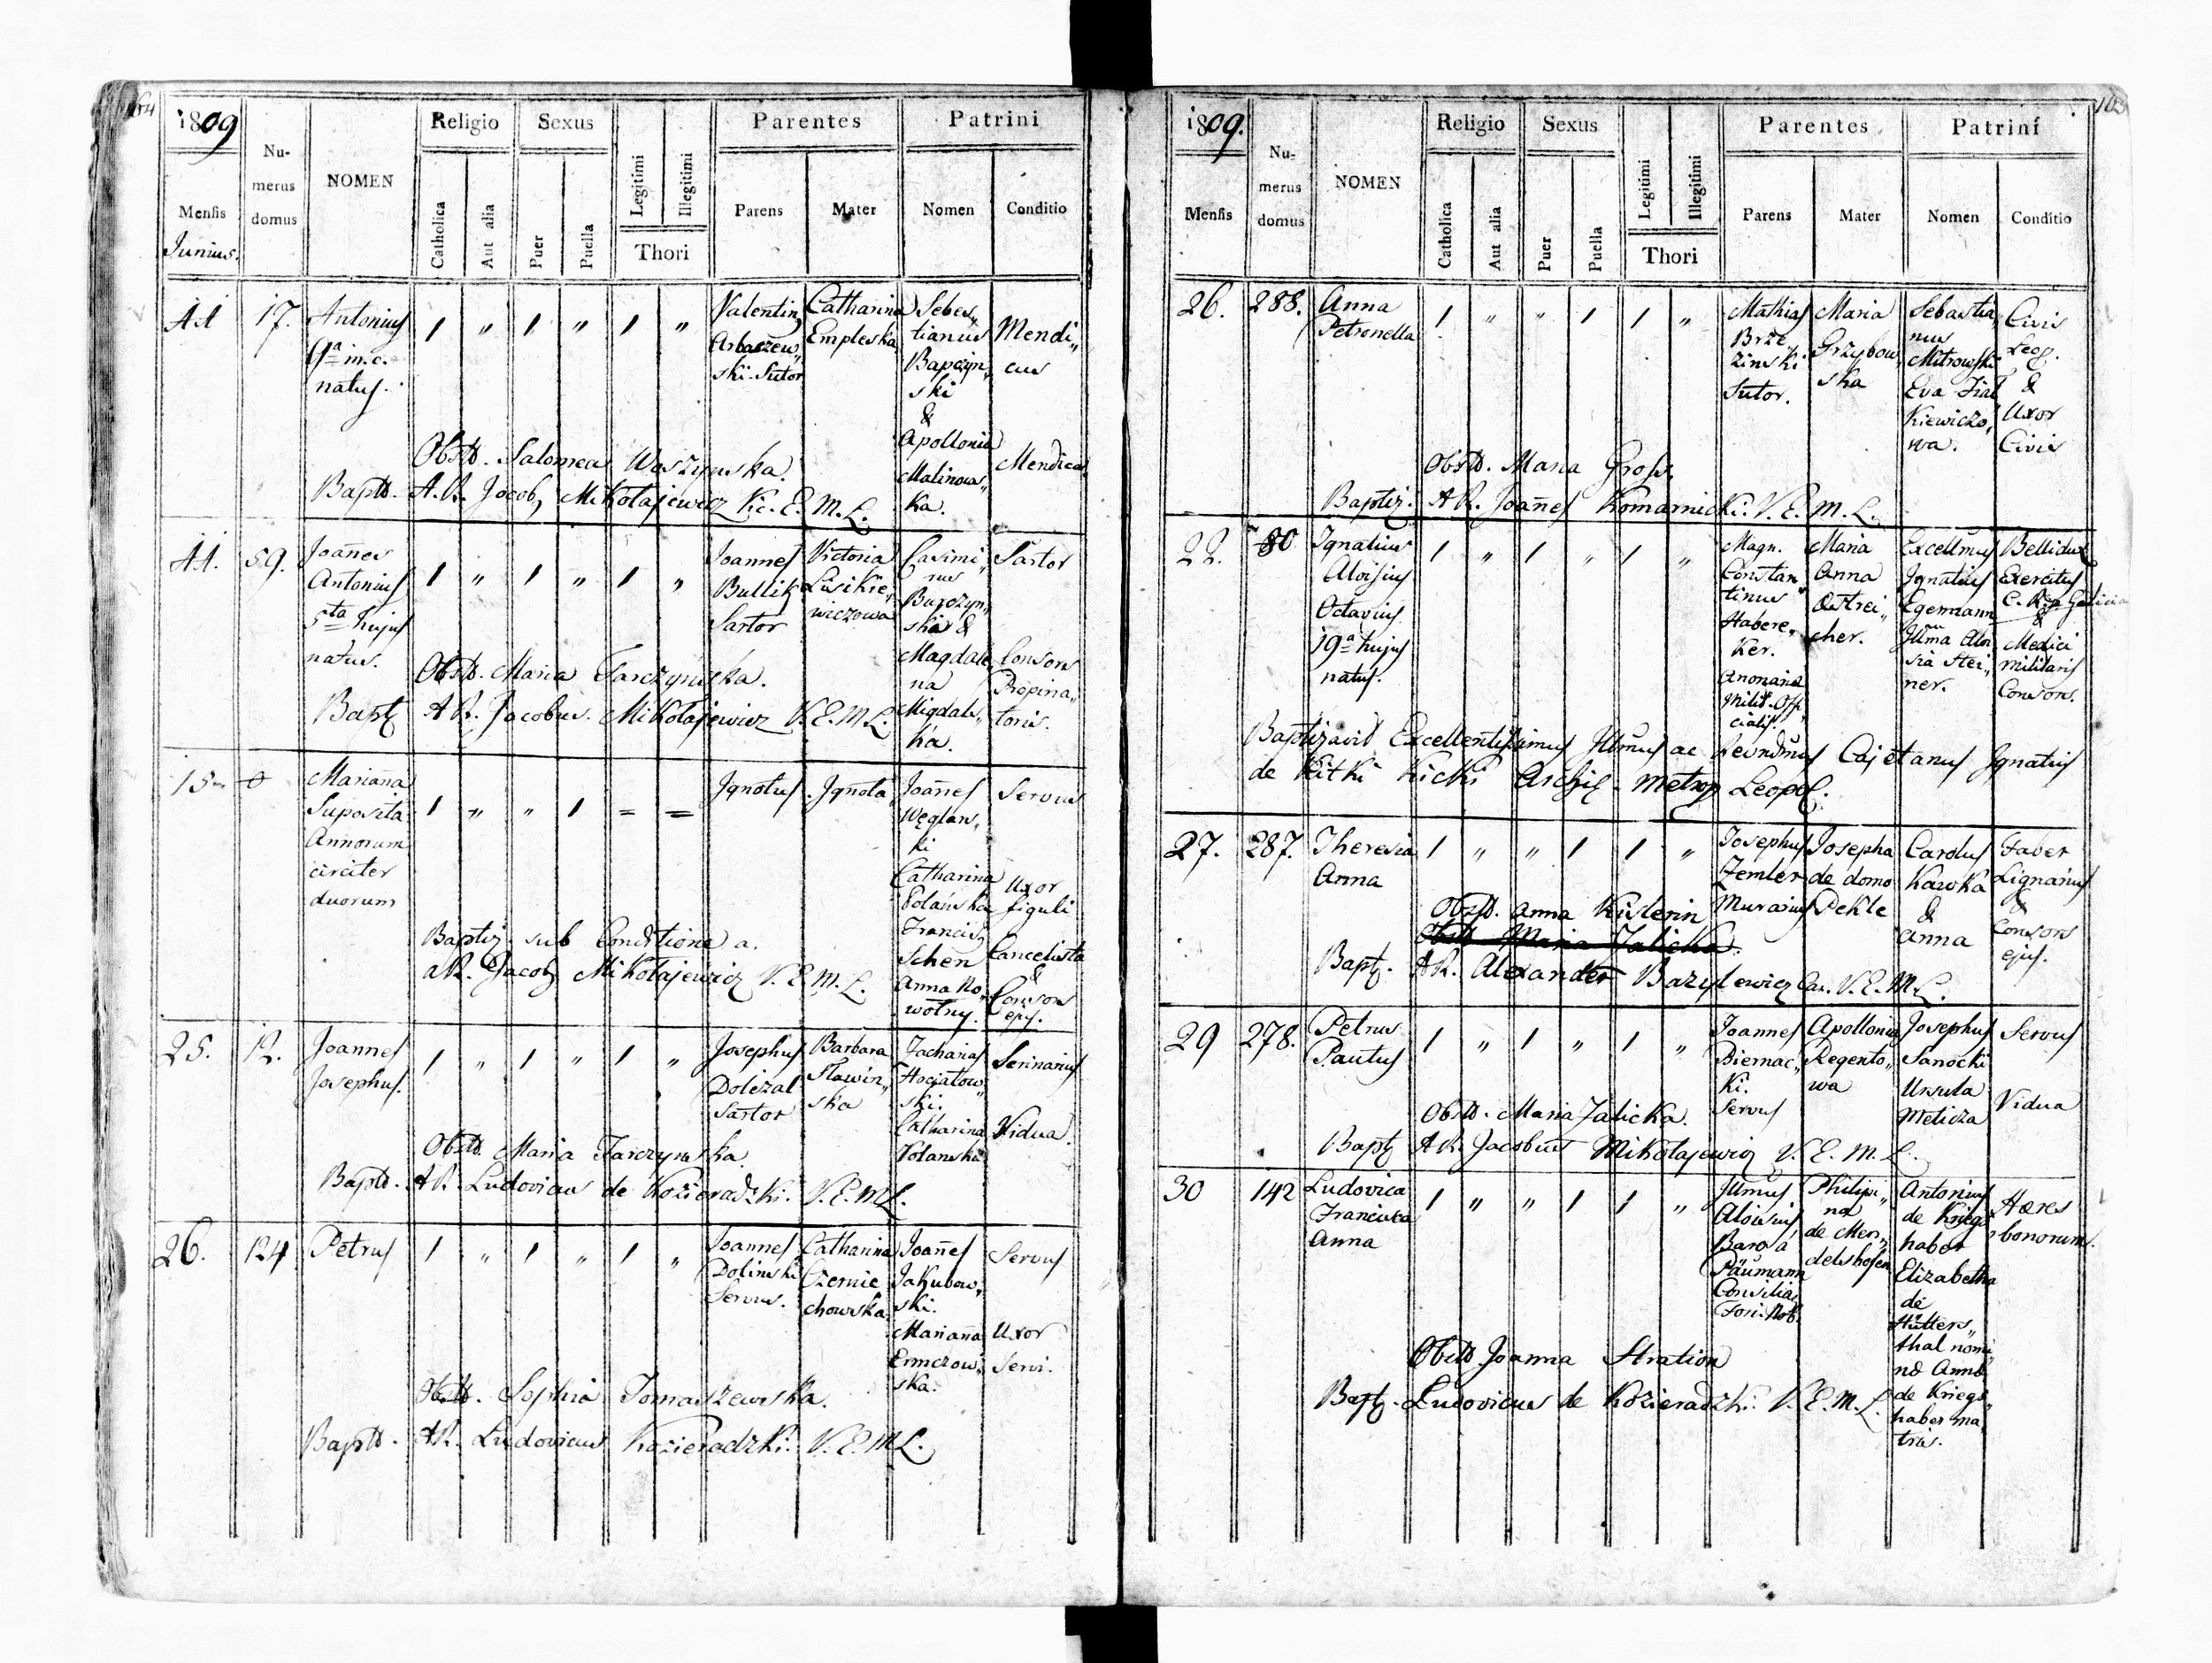 1809
Nu-
merus
domus
NOMEN
Religio
Sexus
Parentes
Patrini
Mensis
Junius.
Catholica
Aut alia
Puer
Puella
Legitimi
Illegitimi
Thori
Parens
Mater
Nomen
Conditio
11
17.
Antonius
9a m.c.
natus.
Valentin
Catharina
Empleska
ski Sutor
Sebes,,
tianus
Bapczyn,,
ski
&
Apollonia
Malinows,,
ka.
Mendi,,
cus
Mendica
Obstt. Salomea Waszynska.
Baptt. A.R. Jacob Mikołajewicz V. E. M. L.
11.
59.
Joannes
Antonius
5ta hujus
natus.
Joannes
Bullik
Sartor
Victoria
Lisikie,,
wiczowa
Casimi,,
rus
Burczyn,,
ski &
Magdale
na
Migdals,,
ka.
Sartor
Consors
Propina,,
toris.
Obstt. Maria Tarczynska.
Bapt A R. Jacobus Mikołajewicz V. E. M L.
15
0
Marianna
Suposita
Annorum
circiter
duorum
Ignotus
Ignota
Joannes
Węglars,,
ki
Catharina
Polańska
Francis
Schen
Anna No,,
wotny.
Servus
Uxor
figuli
Cancelista
&
Consors
ejus.
Baptiz sub Conditione a.
AR. Jacob Mikołajewicz V. E. M. L.
25.
12.
Joannes
Josephus.
Josephus
Doleżal
Sartor
Barbara
Sławin,,
ska
Zacharias
Hociatow,,
ski.
Catharina
Polanska
Serinarius
Vidua.
Obstt. Maria Tarczynska.
Baptt. A R. Ludovicus de Kozieradzki. V. E. M L.
26.
124
Petrus
Joannes
Dolinski
Servus.
Catharina
Czernie
chowska
Joannes
Jakubow,,
ski.
Marianna
Ermczow,,
ska.
Servus
Uxor
Servi.
Obstt. Sophia Tomaszewska.
Baptt. AR. Ludovicus Kozieradzki. V. E. M L.
1809.
Nu-
merus
domus
NOMEN
Religio
Sexus
Parentes
Patrini
Mensis
Catholica
Aut alia
Puer
Puella
Legitimi
Illegitimi
Thori
Parens
Mater
Nomen
Conditio
26.
288.
Anna
Petronella
Mathias
Brze,,
zinski
Sutor.
Maria
Grzybow,,
ska
Sebastia,,
nus
Mitrowski
Eva Fiał
Kiewiczo,,
wa.
Civis
Leop.
&
Uxor
Civis
Obstt. Maria Gross.
Baptiz. A R. Joannes Komarnicki. V. E. M. L.
22.
80
Ignatius
Aloisius
Octavius
19a hujus
natus.
Magn.
Constan
tinus
Habere,,
Ker.
Milit. Offi
cialis.
Maria
Anna
Oestrei,,
cher.
Excellmus
Ignatius
Egermann
Illma Aloi
sia Stei,,
ner.
Bellidux
Exercitus
&
Medici
militaris
Consors.
Baptizavit Excellentissimus Illmus ac Revndmus Cajetanus Ignatius
de Kitki Kicki Archiep. Metrop Leopol.
27.
287.
Theresia
Anna
Josephus
Zemler
Murarius
Josepha
de domo
Pekle
Carolus
Kawka
&
Anna
Faber
Lignarius
&
Consors
ejus.
Obstt. Anna Kislerin
Obstt. Maria Jalicka
Bapt. AR. Alexander Bazylewicz Can. V. E. M L.
29
278.
Petrus
Paulus
Joannes
Biernac,,
Ki.
Servus
Apollonia
Regento,,
wa
Josephus
Sanocki
Ursula
Melicza
Servus
Vidua
Obstt. Maria Jalicka.
Bapt A R. Jacobus Mikołajewicz V. E. M. L.
30
142
Ludovica
Francisca
Anna
Illmus
Aloisius
Baro a
Päumann
Consilia,,
Fori Nob.
Philipi,,
na
de Mer,,
delshofen
Antonius
de Kriegs
haber
Elizabetha
de
Hütters,,
thal nomi
ne Anna
de Kriegs,,
haber ma,,
tris.
Hæres
bonorum.
Obstt Joanna Stration
Bapt. Ludovicus de Kozieradzki. V. E. M. L.